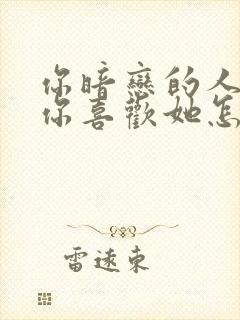 你暗戀的人
你喜歡她怎
雷遠東